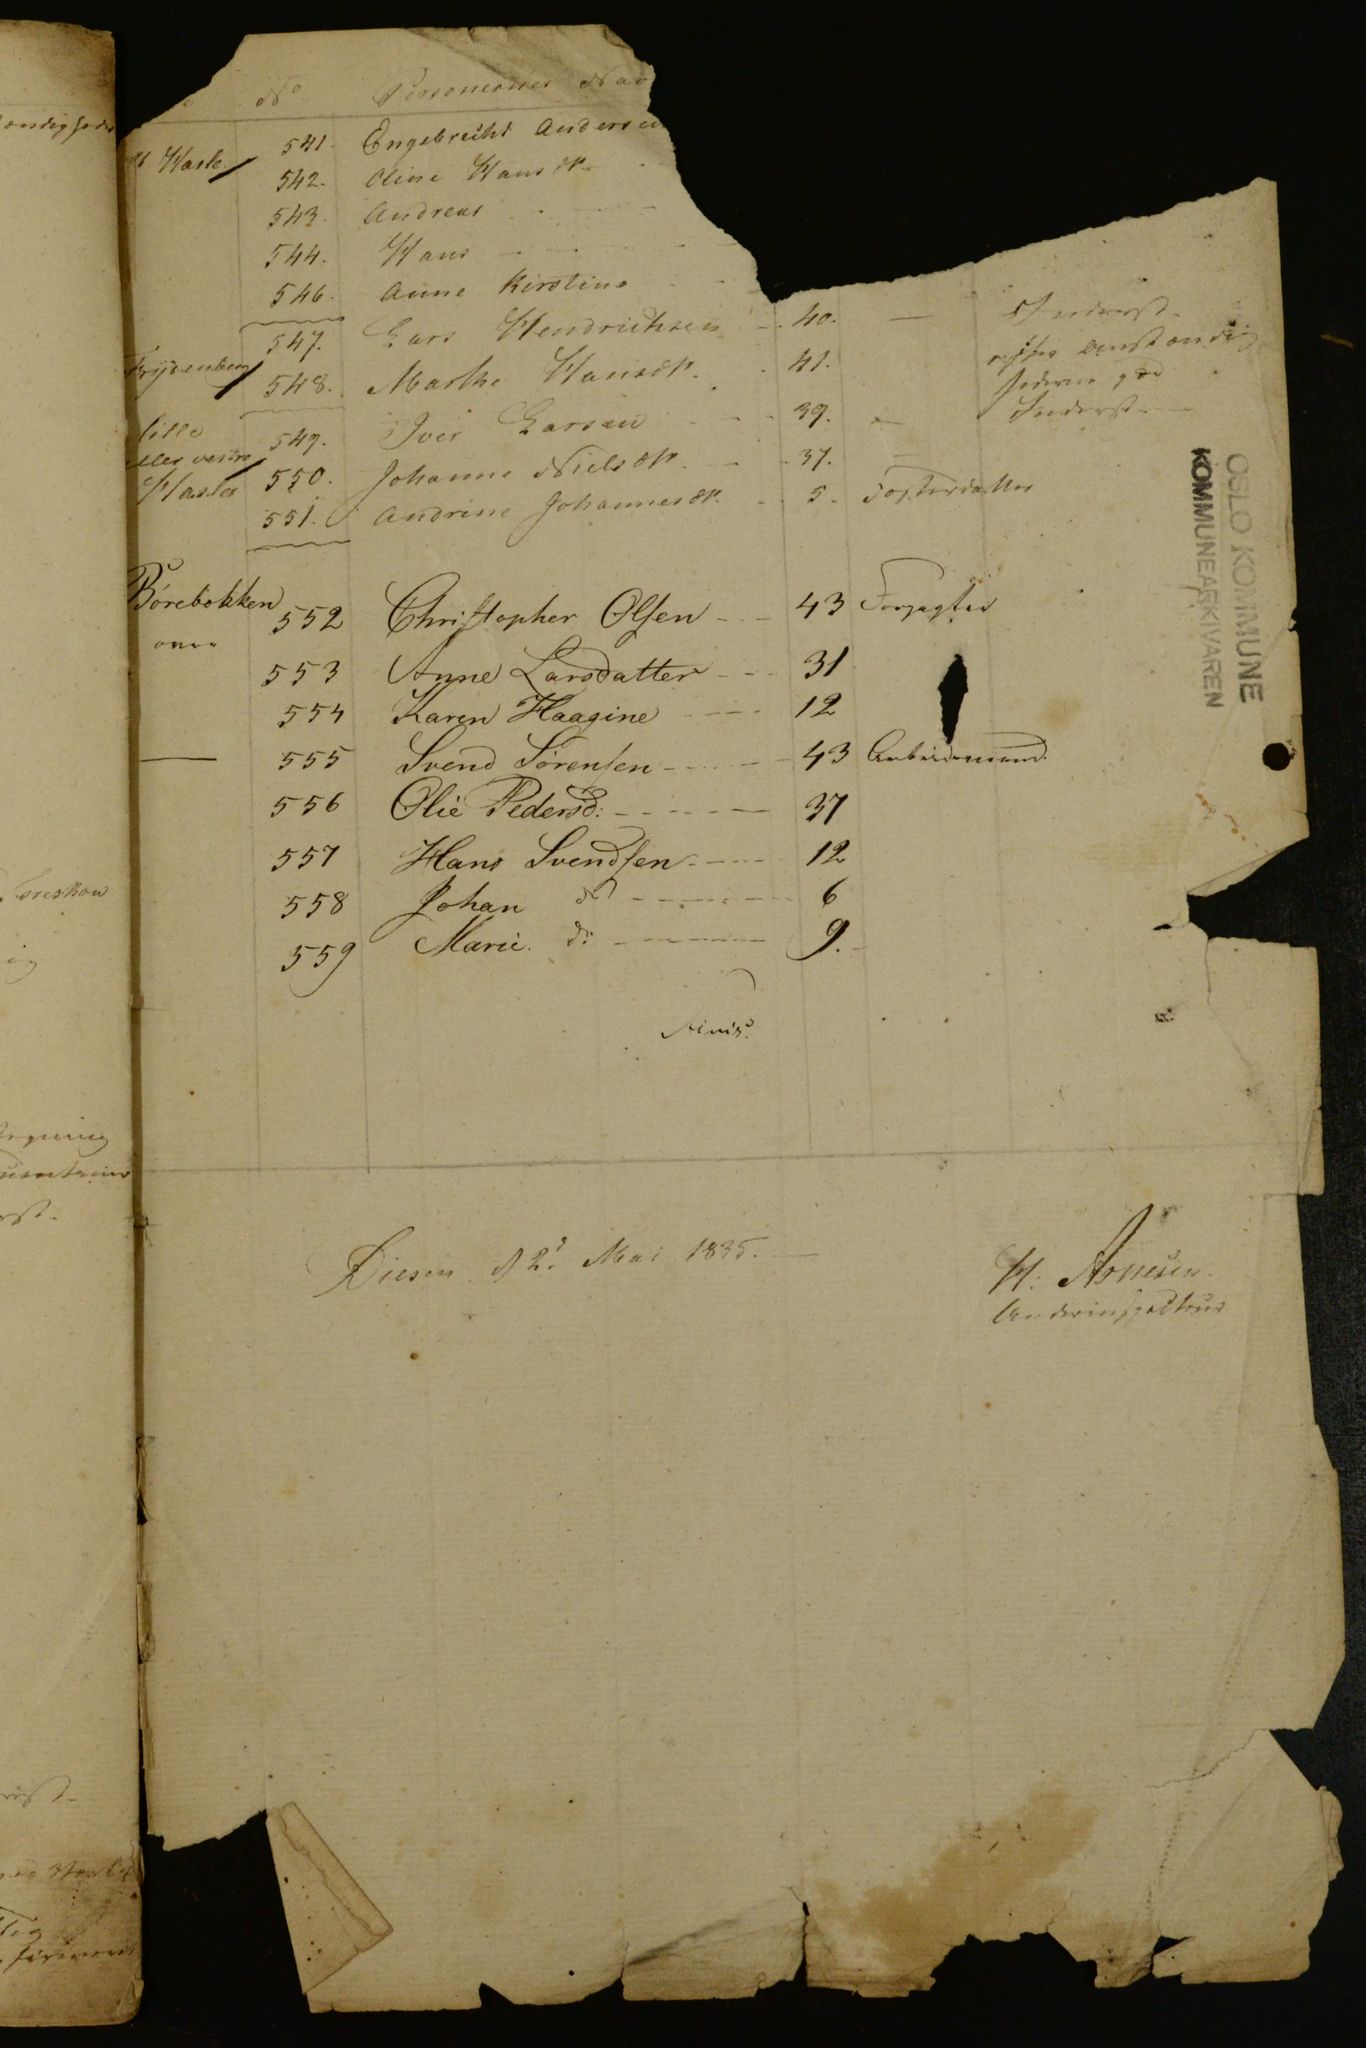 No Personernes Nav
541. Engebrecht Anders
542. Oline Hansdtr.
543. Andreas
544. Hans
546. Anne Kirstine
547. Lars Hendrichsen 40. Inderst
Frydenberg 548. Marthe Hansdtr. 41.
lille
549. Iver Larsen 39. Inderst
eller vestre
Hasler 550. Johanne Nielsdtr. 37.
551. Andrine Johannesdtr. 5. Fosterdatter
Börebokken
552 Christopher Olsen 43 Forpagter
553 Anne Larsdatter 31
554 Karen Haagine 12
555 Svend Sörensen 43 Arbeidsmand.
556 Olie Pedersd: 37
557 Hans Svendsen 12
558 Johan do 6
559 Marie. do 9.
Finis.
Diesen d 2d Mai 1835.
H: Arnesen
OSLO KOMMUNE
KOMMUNEARKIVAREN